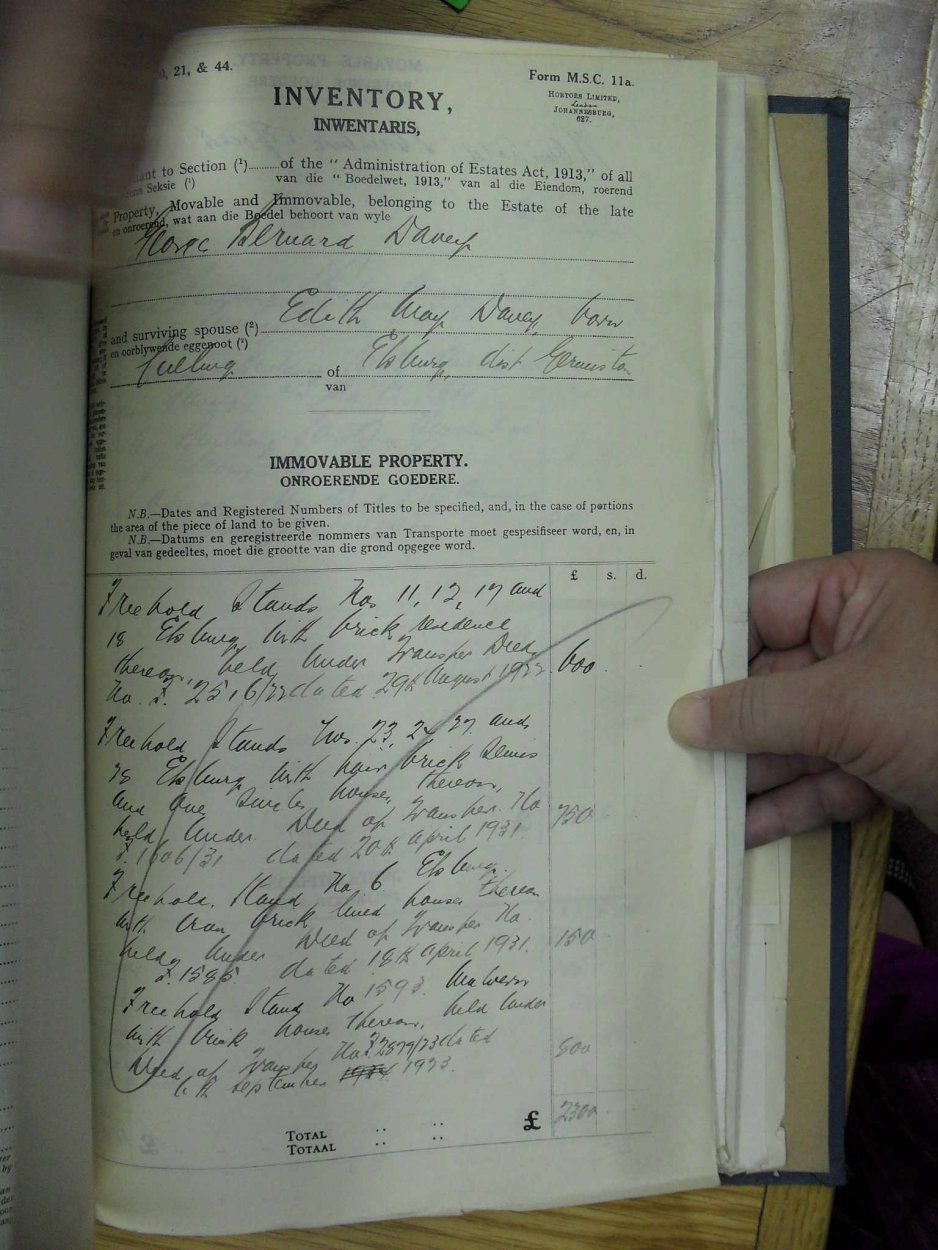 21, & 44.
Form M.S.C. 11a.
HORTORS LIMITED,
JOHANNESBURG,
627.
INVENTORY,
INWENTARIS,
to Section (¹)..........of the "Administration of Estates Act, 1913," of all
Seksie (¹) van die "Boedelwet, 1913," van al die Eiendom, roerend
Property, Movable and Immovable, belonging to the Estate of the late
en onroerend, wat aan die Boedel behoort van wyle
George Bernard Davey
Edith May Davey, born
and surviving spouse (²)
en oorblywende eggenoot (²)
of Elsburg, dist Germiston
van
IMMOVABLE PROPERTY.
ONROERENDE GOEDERE.
N.B.—Dates and Registered Numbers of Titles to be specified, and, in the case of portions
the area of the piece of land to be given.
N.B.—Datums en geregistreerde nommers van Transporte moet gespesifiseer word, en, in
geval van gedeeltes, moet die grootte van die grond opgegee word.
£ s. d.
Freehold Stands Nos 11, 12, 17 and
18 Elsburg with brick residence
thereon, held under Transfer Deed 600
No. F. 2516/22 dated 29th August 1922
Freehold Stands Nos. 23, 24 27 and
28 Elsburg with pair brick Semis
and one Single house, thereon,
held under Deed of Transfer No 750
F. 1606/31 dated 20th April 1931
Freehold Stand No 6 Elsburg
with iron brick lined house thereon
held under Deed of Transfer No. 150
F. 1585 dated 18th April 1931.
Freehold Stand No 1593 Malvern
with brick house thereon, held under
Deed of Transfer No F2879/23 dated 800
6th September 1923.
TOTAL .. .. £ 2300
TOTAAL .. ..